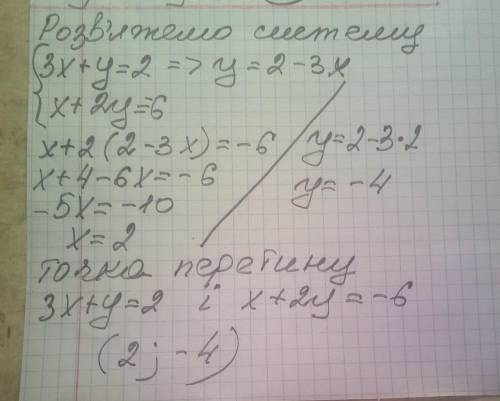 Розв'яжемо систему
{3x+y=2 => y=2-3x
{x+2y=-6
x+2(2-3x)=-6
x+4-6x=-6
-5x=-10
x=2
y=2-3·2
y=-4
точка перетину
3x+y=2 і x+2y=-6
(2; -4)